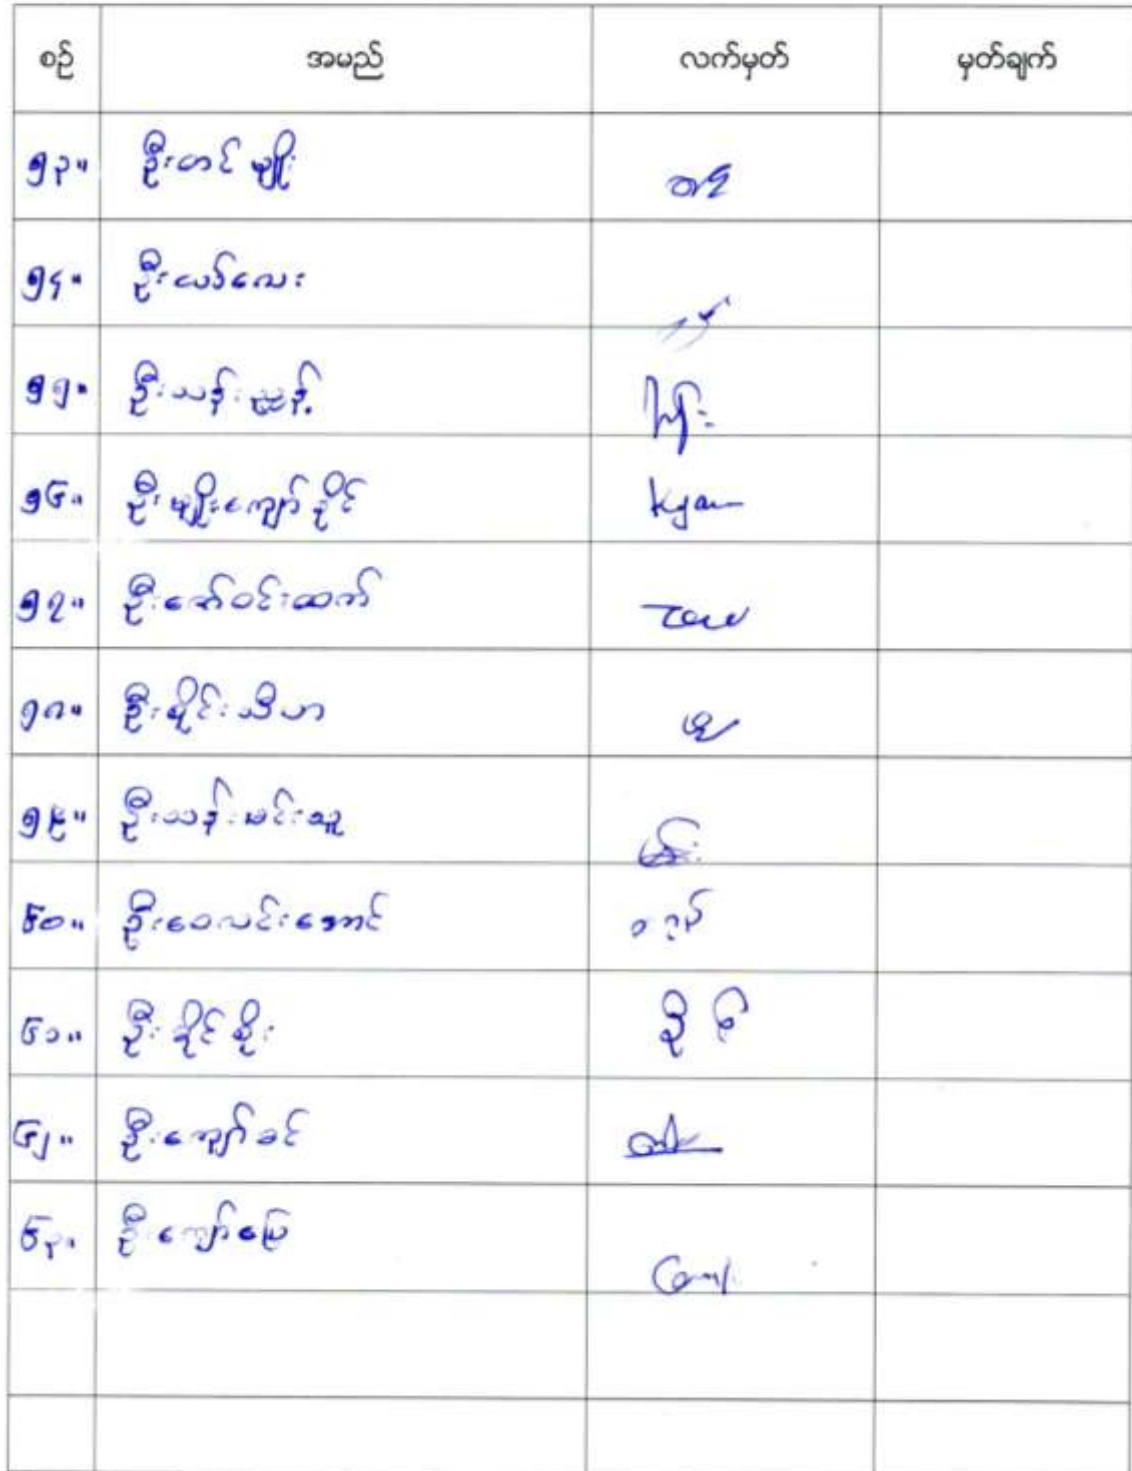 စဉ် အမည် လက်မှတ် မှတ်ချက်
၅၃။ ဦးတင်မျိုး
၅၄။ ဦးယဉ်လေး
၅၅။ ဦးသန်းညွန့်
၅၆။ ဦးမျိုးကျော်နိုင် kyaw
၅၇။ ဦးဇော်ဝင်းထက် zaw
၅၈။ ဦးစိုင်းသီဟ
၅၉။ ဦးသန်းမင်းသူ
၆၀။ ဦးဝေလင်းအောင်
၆၁။ ဦးခိုင်စိုး
၆၂။ ဦးကျော်ခင်
၆၃။ ဦးကျော်မြေ